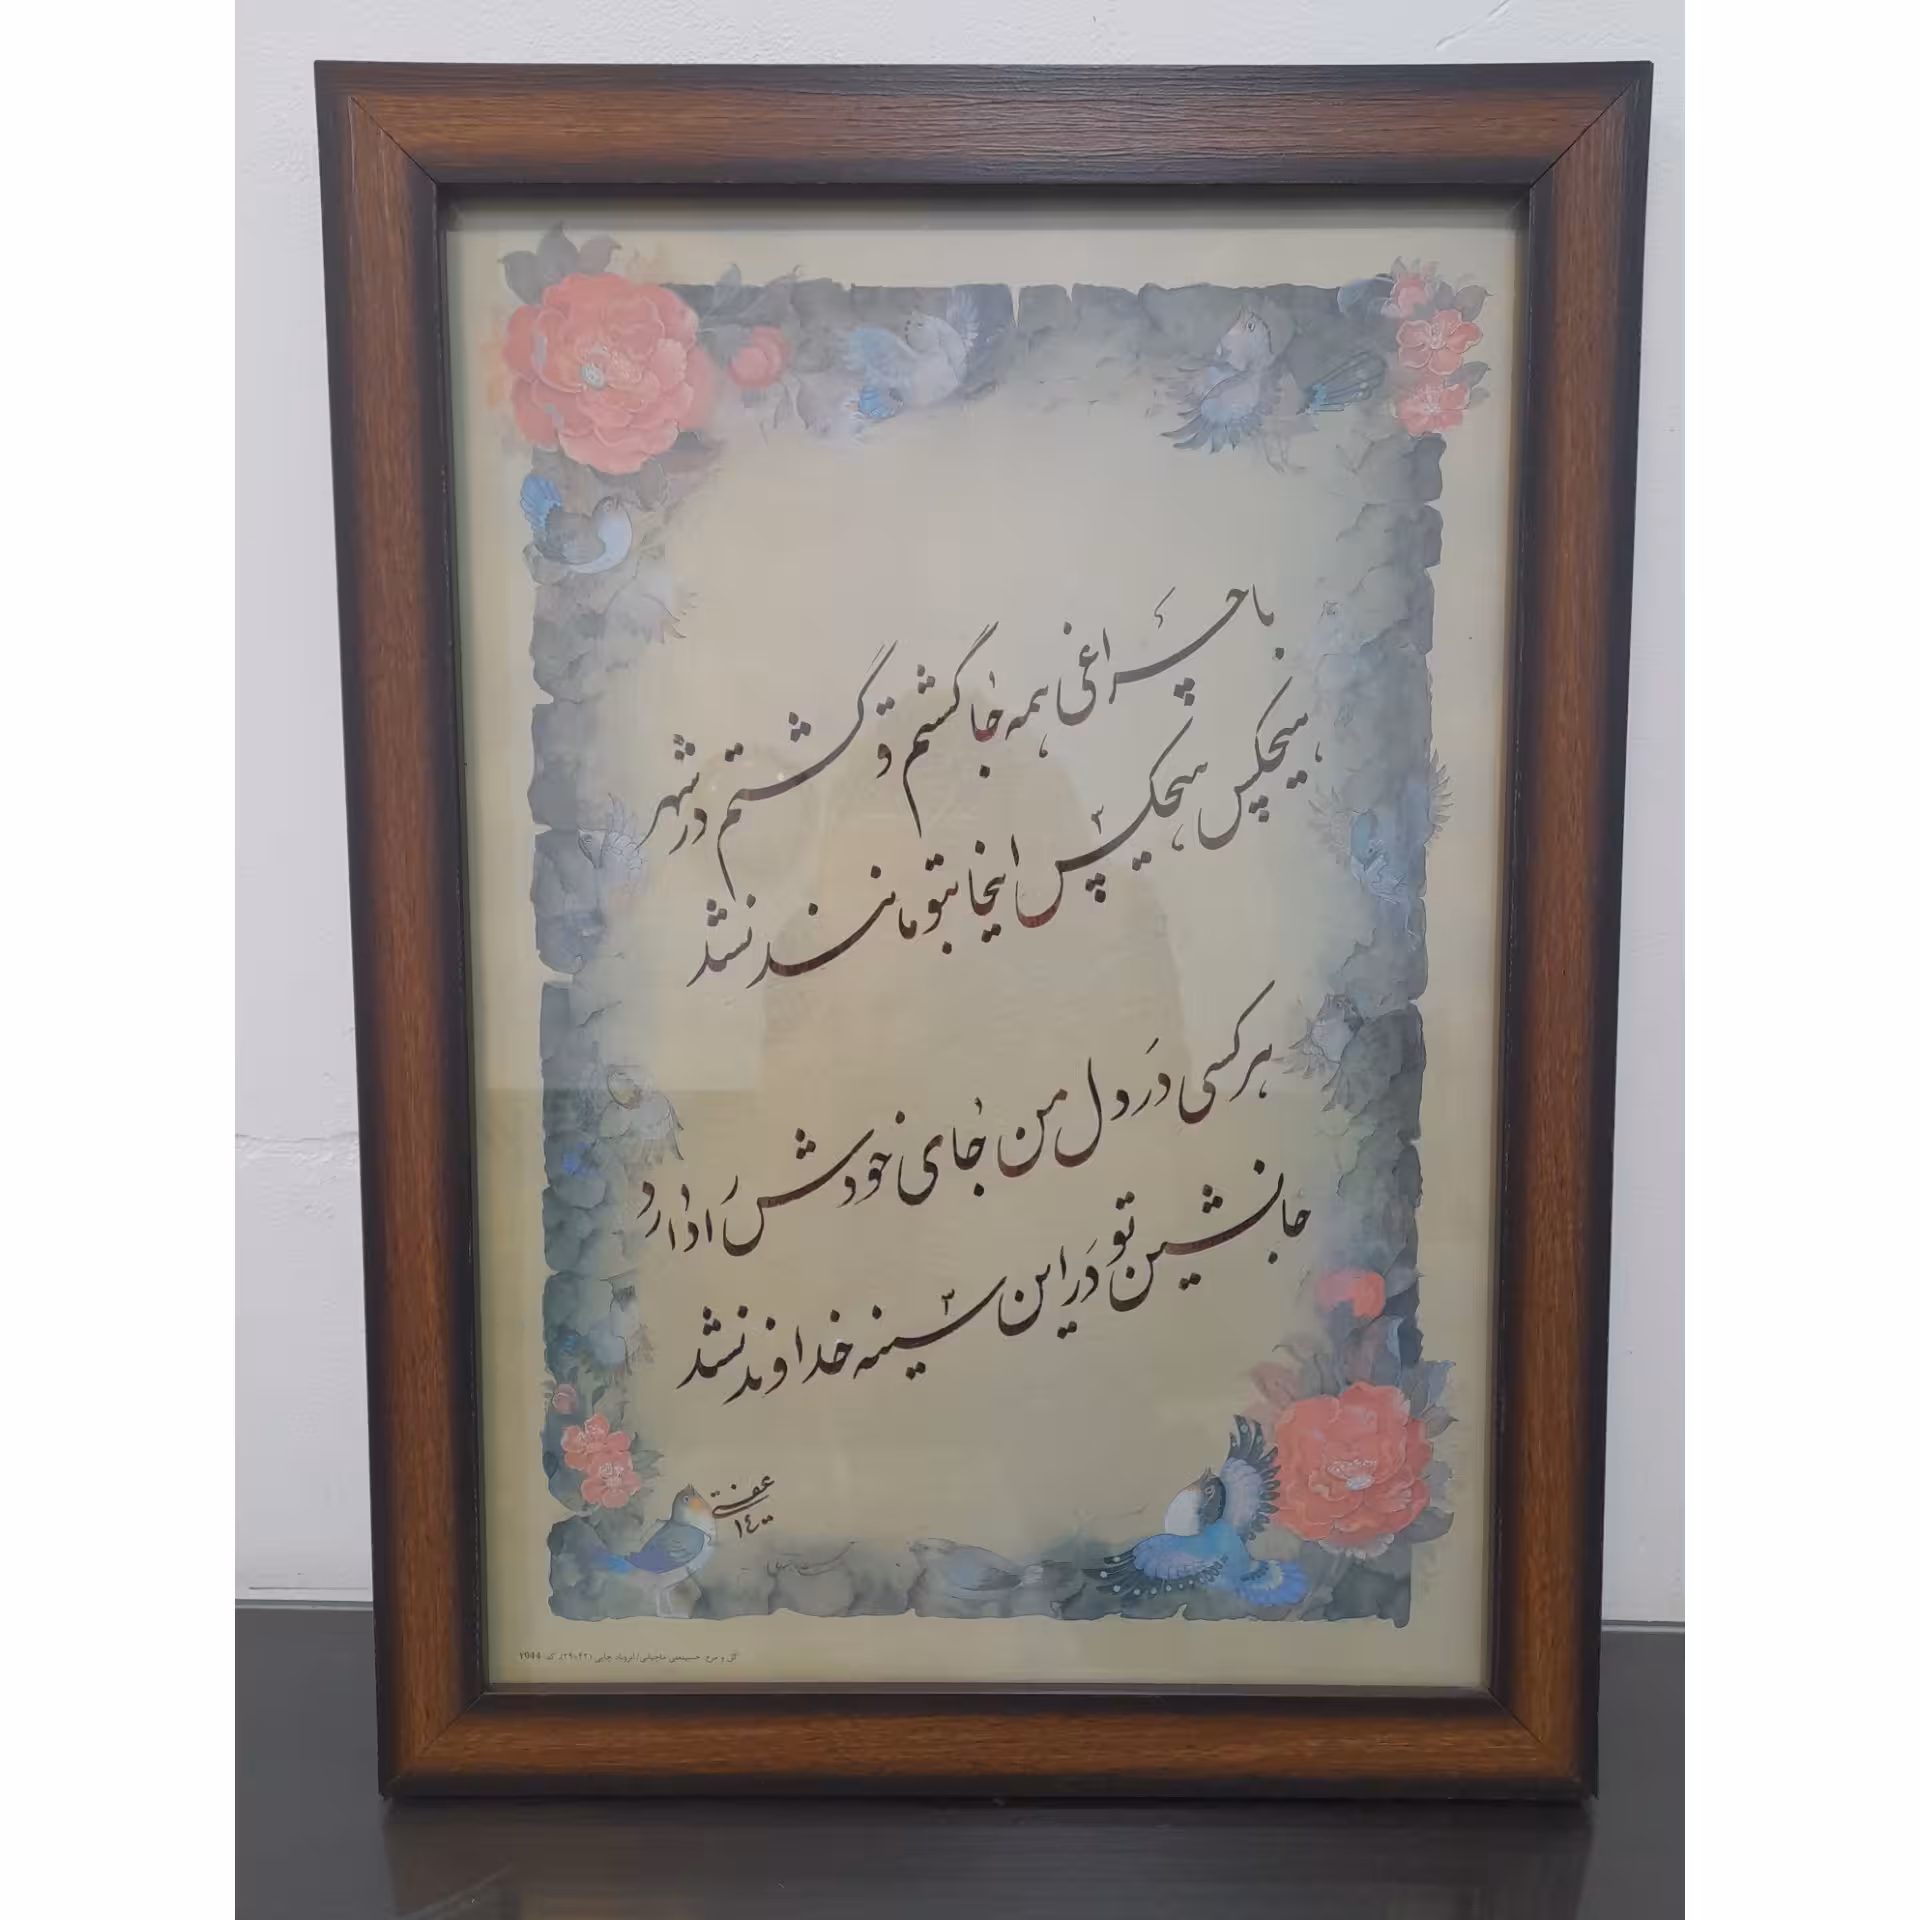 با چراغی همه جا گشتم و گشتم در شهر
هیچکس هیچکس اینجا بتو مانند نشد
هر کسی در دل من جای خودش را دارد
جانشین تو در این سینه خداوند نشد
عفتی
گل و مرغ حسینعلی ماچیانی /